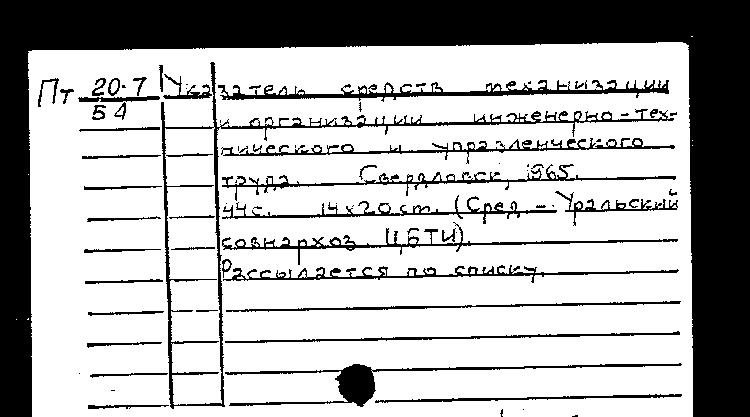 Пт 20-7 Указатель средств механизации
54 и организации инженерно-тех-
нического и управленческого
труда. Свердловск, 1965.
44с. 14х20ст. (Сред-Уральский
совнархоз ЦБТИ).
Рассылается по списку.